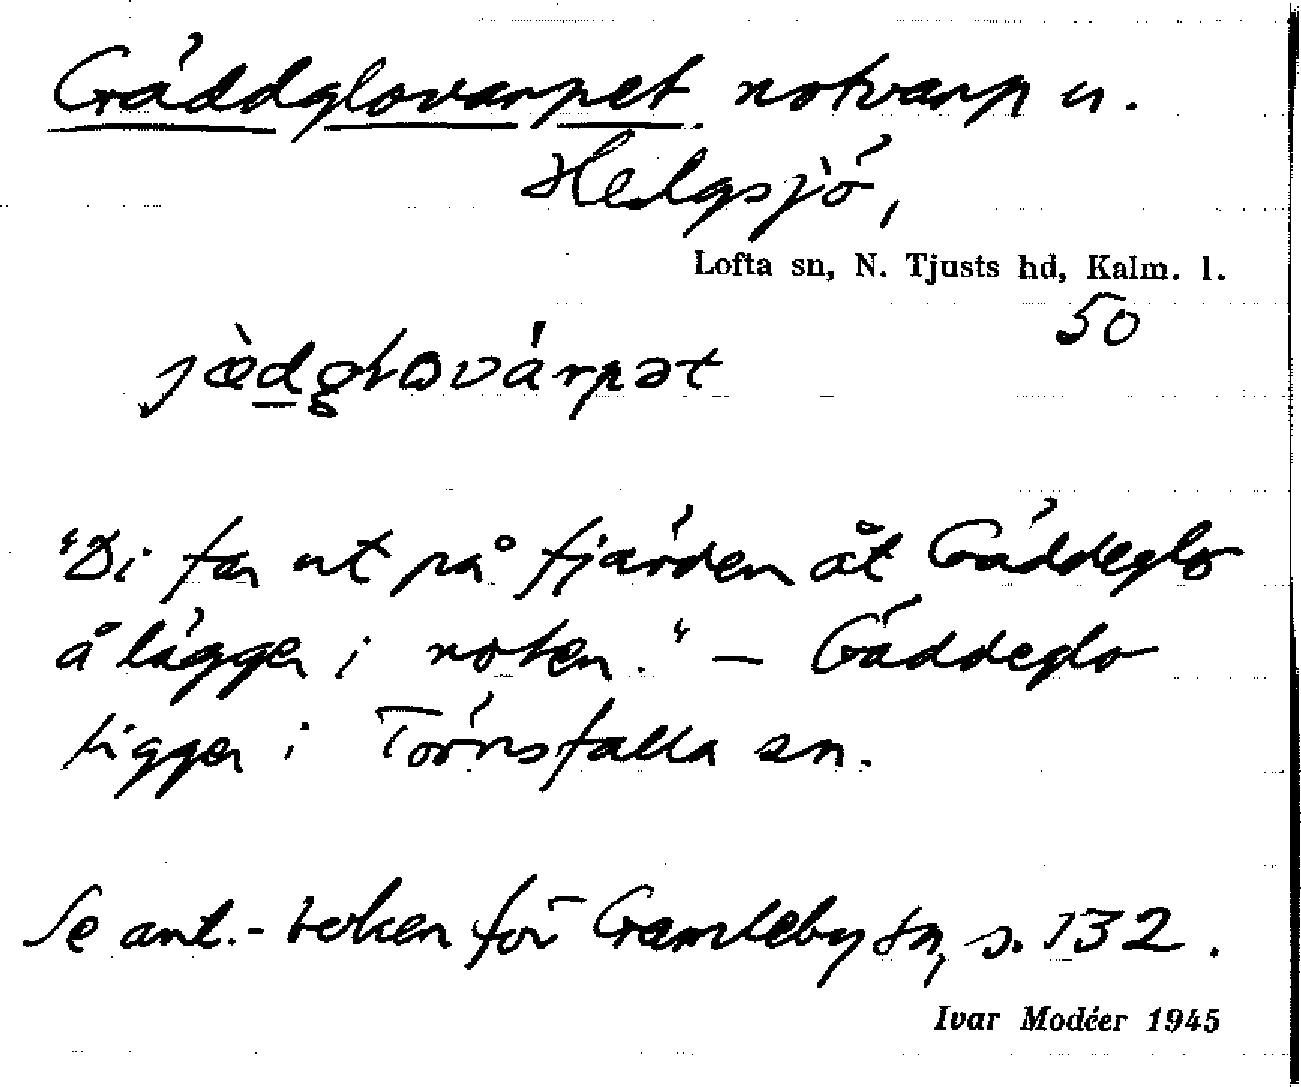 Gäddglovarpet notvarp u.
Helgsjö,
Lofta sn, N. Tjusts hd, Kalm. l.
50
jæ̀dglovárpət
"Di far ut på fjärden åt Gäddeglo
å lägger i noten." — Gäddeglo
ligger i Törnsfalla sn.
Se ant.-boken för Gamleby sn, s. 132.
Ivar Modéer 1945